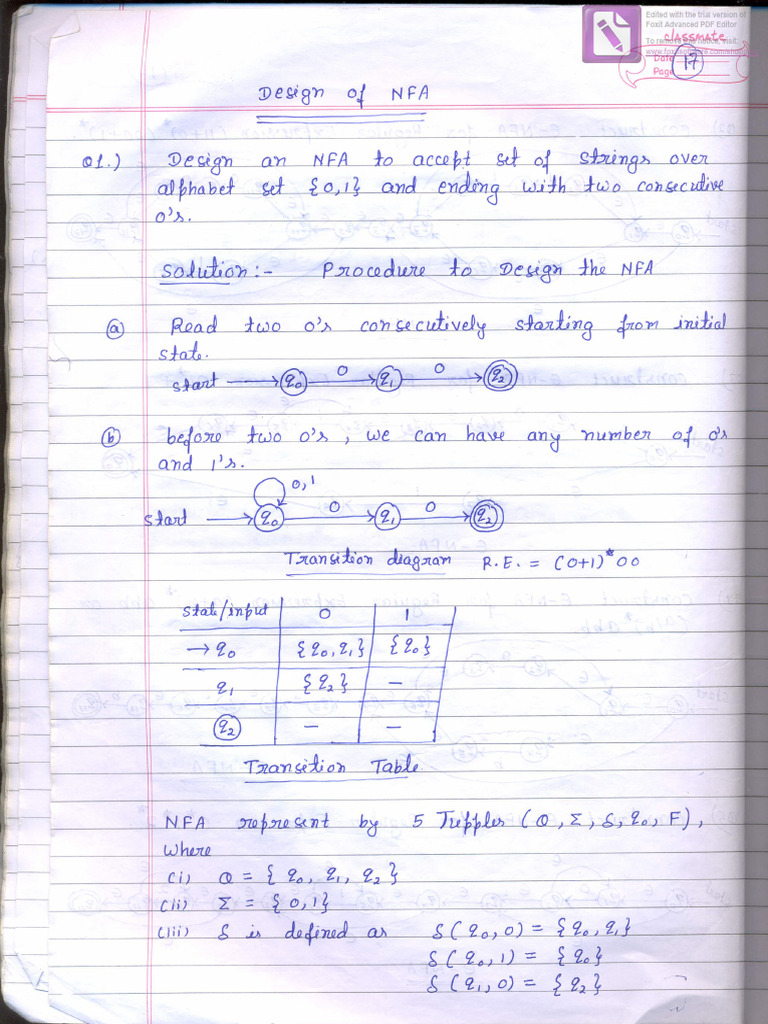 Edited with the trial version of
Foxit Advanced PDF Editor
To remove this notice, visit:
www.foxitsoftware.com/shopping
classmate
Date
Page 17
Design of NFA
Q1.) Design an NFA to accept set of strings over
alphabet set {0,1} and ending with two consecutive
0's.
Solution:- Procedure to Design the NFA
(a) Read two 0's consecutively starting from initial
state.
start q0 0 q1 0 q2
(b) before two 0's, we can have any number of 0's
and 1's.
0,1
start q0 0 q1 0 q2
Transition diagram R.E. = (0+1)*00
State/input 0 1
→q0 {q0,q1} {q0}
q1 {q2} –
q2 – –
Transition Table.
NFA represent by 5 Tupples (Q, Σ, δ, q0, F),
where
(i) Q = {q0, q1, q2}
(ii) Σ = {0,1}
(iii) δ is defined as δ(q0,0) = {q0,q1}
δ(q0,1) = {q0}
δ(q1,0) = {q2}